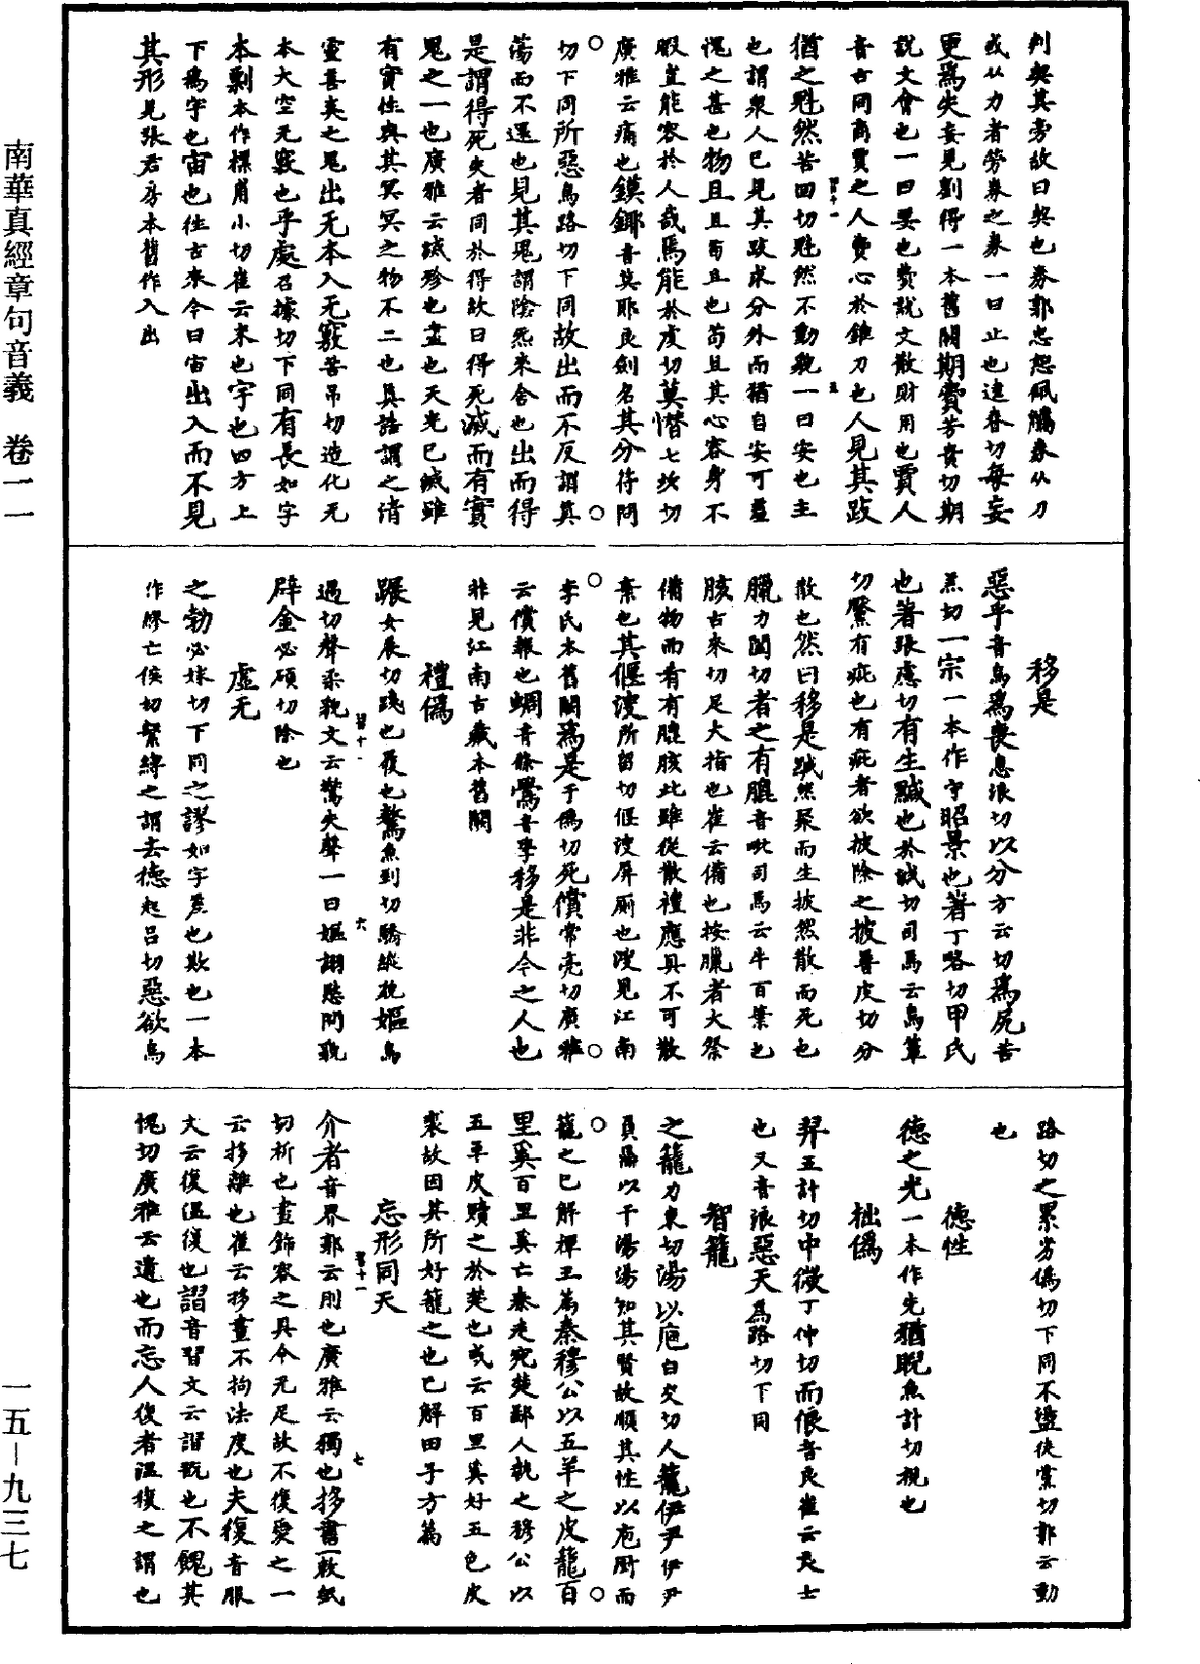 判契其旁故曰契也券郭忠恕佩觿券从刀
或从力者勞券之券一曰止也逵眷切每妄
更爲失妄見劉得一本舊闕期費芳貴切期
說文會也一曰要也費說文散財用也賈人
音古同商賈之人費心於錐刀也人見其跂
猶之魁然苦回切魁然不動貌一曰安也主
也謂衆人已見其跂求分外而猶自安可羞
愧之甚也物且且苟且也苟且其心容身不
暇豈能容於人哉焉能於虔切莫憯七坎切
廣雅云痛也鏌鋣音莫耶良劍名其分符問
切下同所惡烏路切下同故出而不反謂其
蕩而不還也見其鬼謂陰炁來舍也出而得
是謂得死失者同於得故曰得死滅而有實
鬼之一也廣雅云滅殄也盡也天光已滅雖
有實性與其冥冥之物不二也真誥謂之清
靈善爽之鬼出无本入无竅苦弔切造化无
本大空无竅也乎處召據切下同有長如字
本剽本作摽肩小切崔云末也宇也四方上
下爲宇也宙也往古來今曰宙出入而不見
其形見張君房本舊作入出
移是
惡乎音烏爲喪息浪切以分方云切爲尻苦
羔切一宗一本作守昭景也著丁略切甲氏
也著張慮切有生黬也於減切司馬云烏簟
切黶有疵也有疵者欲披除之披普皮切分
散也然曰移是黬然聚而生披然散而死也
臘力闔切者之有膍音毗司馬云牛百葉也
胲古來切足大指也崔云備也按臘者大祭
備物而肴有膍胲此雖從散禮應具不可散
棄也其偃溲所留切偃溲屏厠也溲見江南
李氏本舊闕爲是于僞切死償常亮切廣雅
云償報也蜩音條鷽音學移是非今之人也
非見江南古藏本舊闕
禮僞
蹍女展切踐也履也驁魚到切驕縱也嫗烏
遇切聲柔貌文云驚失聲一曰嫗詡慰問貌
辟金必碩切除也
虛无
之勃必妹切下同之謬如字差也欺也一本
作膠亡侯切繫縛之謂去德起呂切惡欲烏
路切之累劣僞切下同不盪徒黨切郭云動
也
德性
德之光一本作先猶睨魚計切視也
拙僞
羿五計切中微丁仲切而俍音良崔云良士
也又音浪惡天爲路切下同
智籠
之籠力東切湯以庖白交切人籠伊尹伊尹
負鼎以干湯湯知其賢故順其性以庖廚而
籠之已解桿王篇秦穆公以五羊之皮籠百
里奚百里奚亡秦走宛楚鄙人執之穆公以
五羊皮贖之於楚也或云百里奚好五色皮
裘故因其所好籠之也已解田子方篇
忘形同天
介者音界郭云刖也廣雅云獨也拸畫一敕紙
切析也畫飾容之具今无足故不復愛之一
云拸離也崔云拸畫不拘法度也夫復音服
文云復溫復也謵音習文云謵翫也不餽其
愧切廣雅云遺也而忘人復者溫復之謂也
南華真經章句音義 卷一一
一五–九三七